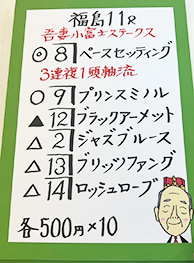 福島11R
吾妻小富士ステークス
◎8 ペースセッティング
3連複1頭軸流
○9 プリンスミノル
▲12 ブラックアーメット
△2 ジャズブルース
△13 ブリッツファング
△14 ロッシュローブ
各500円×10